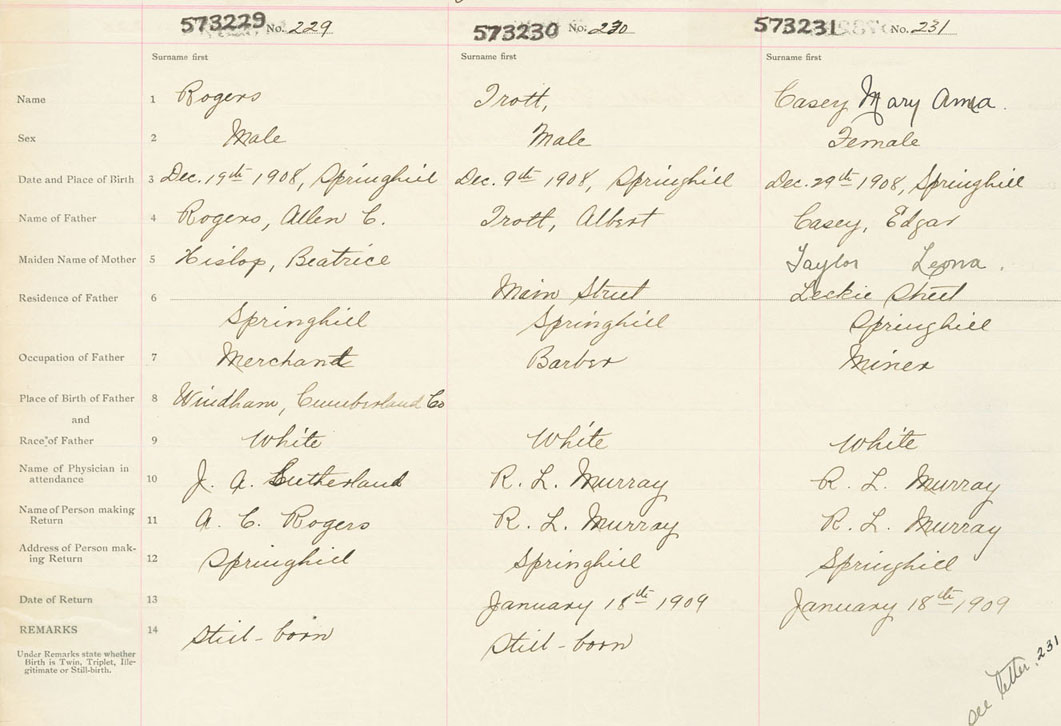 573229 No. 229 573230 No. 230 573231 No. 231
Surname first Surname first Surname first
Name 1 Rogers Trott, Casey Mary Anna.
Sex 2 Male Male Female
Date and Place of Birth 3 Dec. 19th 1908, Springhill Dec. 9th 1908, Springhill Dec. 29th 1908, Springhill
Name of Father 4 Rogers, Allen C. Trott, Albert Casey, Edgar
Maiden Name of Mother 5 Hislop, Beatrice Taylor Leona.
Main Street Leckie Street
Residence of Father 6
Springhill Springhill Springhill
Occupation of Father 7 Merchant Barber Miner
Place of Birth of Father 8 Windham, Cumberland Co
and
Race of Father 9 White White White
Name of Physician in
attendance 10 J. A. Sutherland R. L. Murray R. L. Murray
Name of Person making
Return 11 A. C. Rogers R. L. Murray R. L. Murray
Address of Person mak-
ing Return 12 Springhill Springhill Springhill
Date of Return 13 January 18th 1909 January 18th 1909
REMARKS 14 Still-born Still-born
Under Remarks state whether
Birth is Twin, Triplet, Ille-
gitimate or Still-birth.
see letter, 231